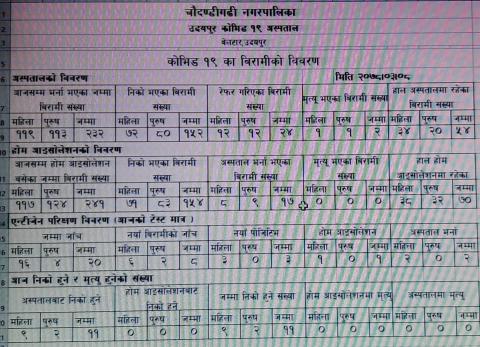 चौदण्डीगढी नगरपालिका
उदयपुर कोभिड १९ अस्पताल
बेलटार,उदयपुर
कोभिड १९ का बिरामीको विवरण
अस्पतालको विवरण मिति २०७८।०३।०८
आजसम्म भर्ना भएका जम्मा बिरामी संख्या निको भएका बिरामी संख्या रेफर गरिएका बिरामी संख्या मृत्यु भएका बिरामी संख्या हाल अस्पतालमा रहेका बिरामी संख्या
महिला पुरुष जम्मा महिला पुरुष जम्मा महिला पुरुष जम्मा महिला पुरुष जम्मा महिला पुरुष जम्मा
११९ ११३ २३२ ७२ ८० १५२ १२ १२ २४ १ १ २ ३४ २० ५४
होम आइसोलेशनको विवरण
आजसम्म होम आइसोलेशन बसेका जम्मा बिरामी निको भएका बिरामी संख्या अस्पताल भर्ना भएका बिरामी संख्या मृत्यु भएका बिरामी संख्या हाल होम आइसोलेशनमा रहेका
महिला पुरुष जम्मा महिला पुरुष जम्मा महिला पुरुष जम्मा महिला पुरुष जम्मा महिला पुरुष जम्मा
११७ १२४ २४१ ७१ ८३ १५४ ८ ९ १७ ० ० ० ३८ ३२ ७०
एन्टीजेन परिक्षण विवरण (आजको टेस्ट मात्र)
जम्मा जाँच नयाँ बिरामीको जाँच नयाँ पोजिटिभ होम आइसोलेशन अस्पताल भर्ना
महिला पुरुष जम्मा महिला पुरुष जम्मा महिला पुरुष जम्मा महिला पुरुष जम्मा महिला पुरुष जम्मा
१६ ४ २० ६ २ ८ ३ ० ३ १ ० १ २ ० २
आज निको हुने र मृत्यु हुनेको संख्या
अस्पतालबाट निको हुने होम आइसोलेशनबाट निको हुने जम्मा निको हुने संख्या होम आइसोलेशनमा मृत्यु अस्पतालमा मृत्यु
महिला पुरुष जम्मा महिला पुरुष जम्मा महिला पुरुष जम्मा महिला पुरुष जम्मा महिला पुरुष जम्मा
९ २ ११ ० ० ० ९ २ ११ ० ० ० ० ० ०